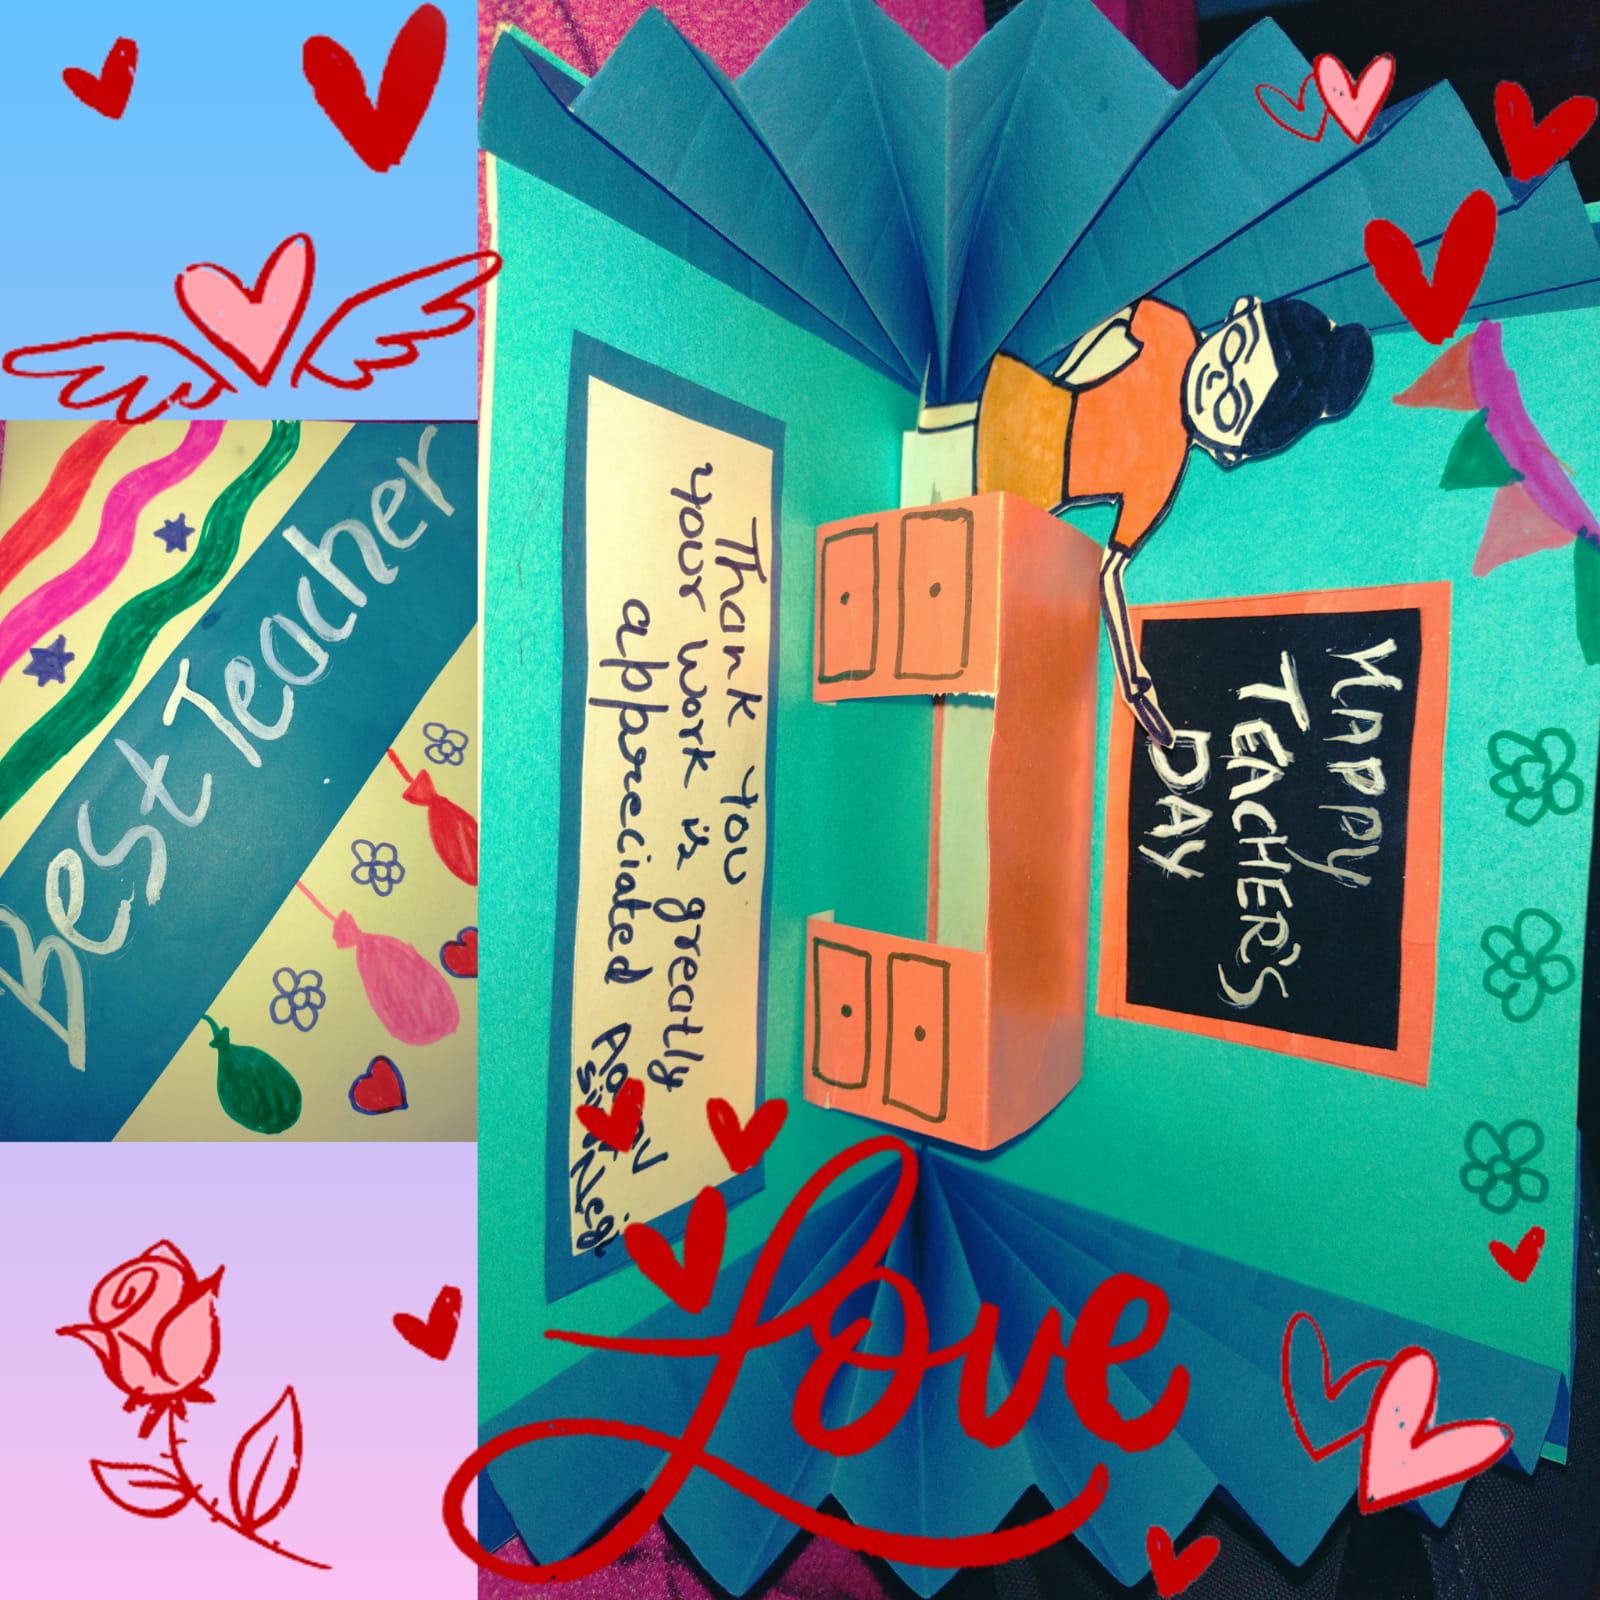 Best Teacher
HAPPY
TEACHER'S
DAY
Thank you
your work is greatly
appreciated
Love